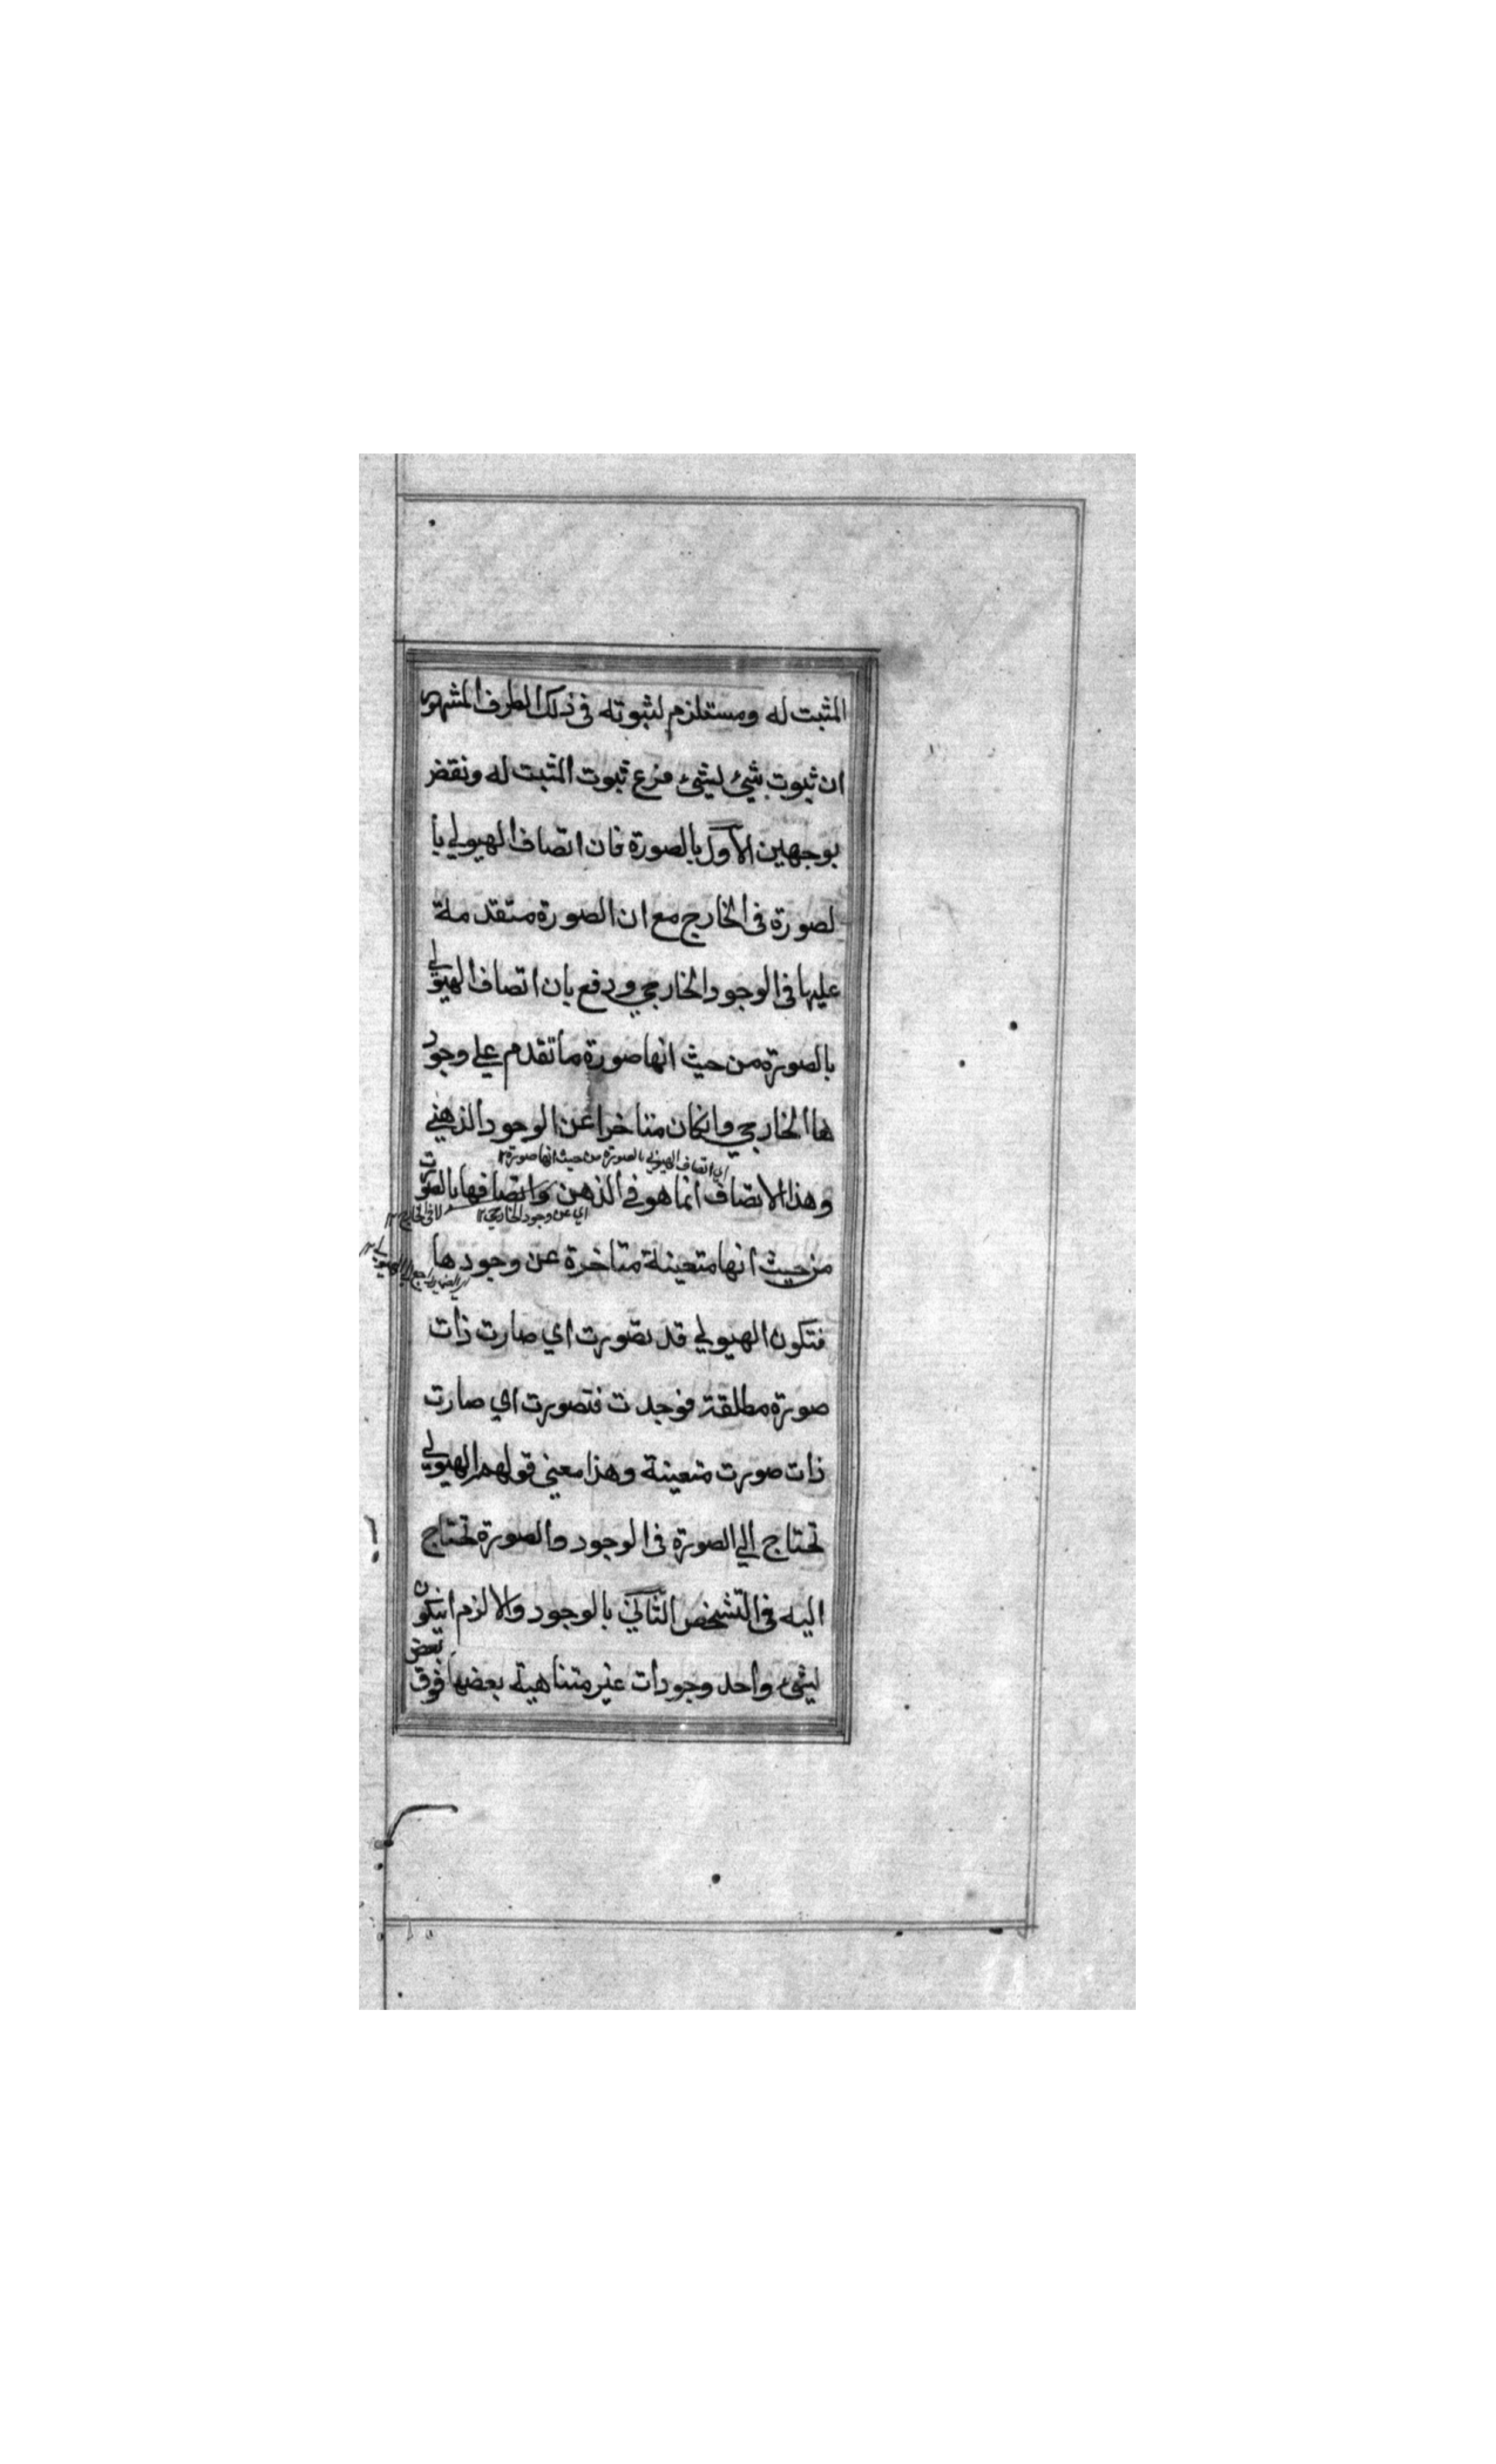 المثبت له ومستلزم لثبوته في ذلك الطرف المشهور
ان ثبوت شيئ لشيئ فرع ثبوت المثبت له ونقض
بوجهين الاول بالصورة فان اتصاف الهيولي با
لصورة في الخارج مع ان الصورة متقدمة
عليها في الوجود الخارجي ودفع بان اتصاف الهيولي
بالصورة من حيث انها صورة ما تقدم علي وجود
ها الخارجي وانكان متاخرا عن الوجود الذهني
اي اتصاف الهيولي بالصورة من حيث انها صورة ١٢
وهذا الاتصاف انما هو في الذهن واتصافها بالصورت
لا في الخارج ١٢
اي عن وجود الخارجي ١٢
من حيث انها متعينة متاخرة عن وجودها
الضمير راجع الي الهيولي ١٢
فتكون الهيولي قد تصورت اي صارت ذات
صورة مطلقة فوجدت فتصورت اي صارت
ذات صورت متعينة وهذا معني قولهم الهيولي
تحتاج الي الصورة في الوجود والصورة تحتاج
اليه في التشخص الثاني بالوجود والا لزم انيكون
لشيء واحد وجودات غير متناهية بعضها فوق بعض